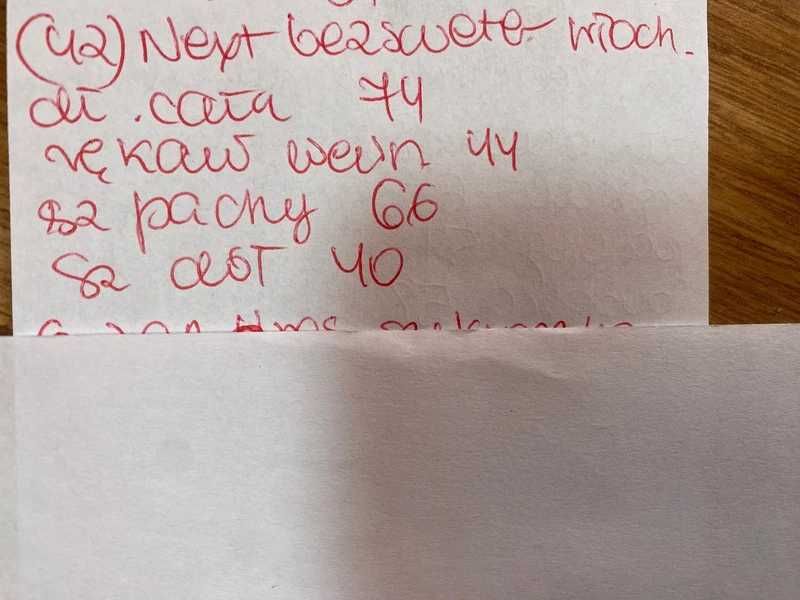 (42) Next bezsweter włoch.
dł. cała 74
rękaw wewn 44
sz pachy 66
sz dół 40